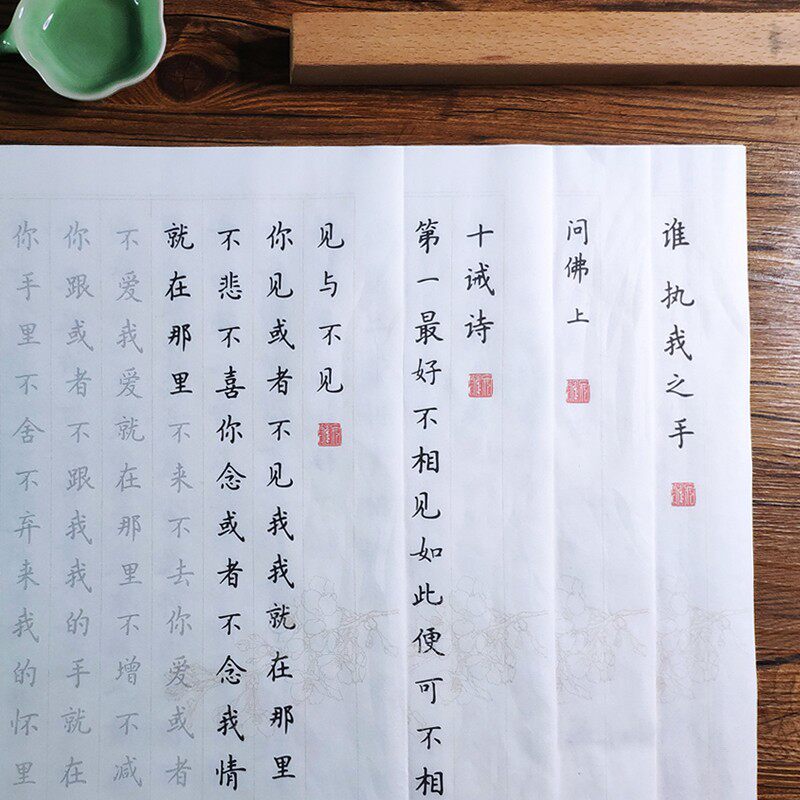 谁执我之手
问佛上
十诫诗
第一最好不相见如此便可不相
见与不见
你见或者不见我我就在那里
不悲不喜你念或者不念我情
就在那里不来不去你爱或者
不爱我爱就在那里不增不减
你跟或者不跟我我的手就在
你手里不舍不弃来我的怀里